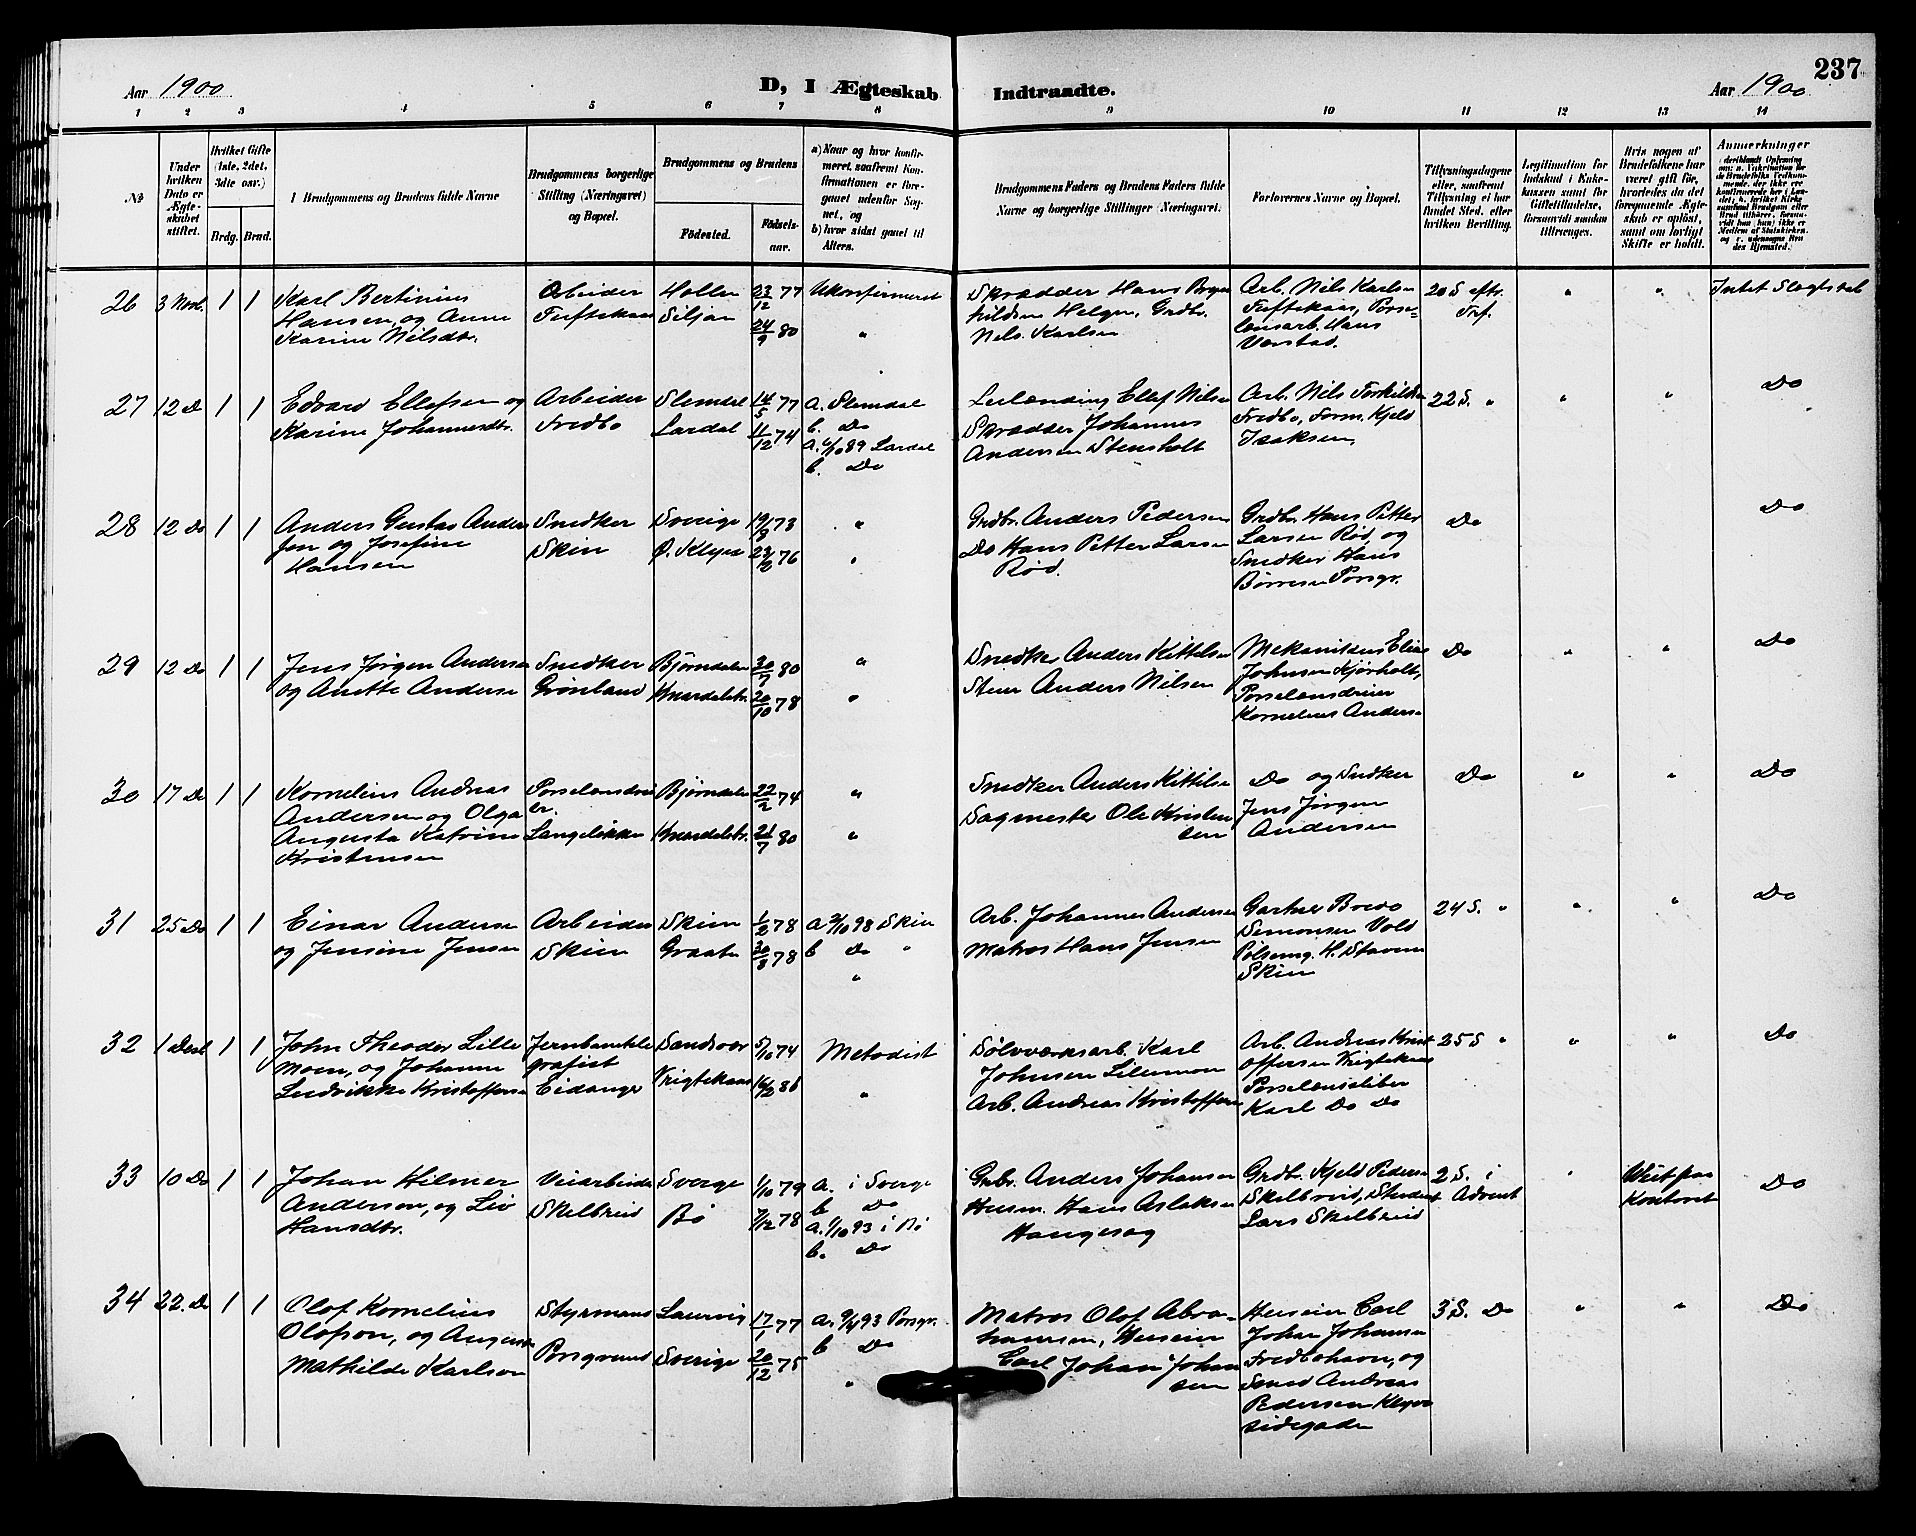 237
Aar 1900
D, I Ægteskab Indtraadte.
Aar 1900
1 2 3 4 5 6 7 8 9 10 11 12 13 14
№
Under hvilken Dato er Ægteskabet stiftet.
Hvilket Gifte (1ste, 2det, 3dte osv.)
Brdg. Brud.
Brudgommens og Brudens fulde Navne
Brudgommens borgerlige Stilling (Næringsvei) og Bopæl.
Brudgommens og Brudens
Fødested.
Fødselsaar.
a) Naar og hvor konfirmeret, saafremt Konfirmationen er foregaaet udenfor Sognet, og
b) hvor sidst gaaet til Alters.
Brudgommens Faders og Brudens Faders fulde Navne og borgerlige Stillinger (Næringsvei.
Forlovernes Navne og Bopæl.
Tillysningsdagene eller, saafremt Tillysning ei har fundet Sted, efter hvilken Bevilling.
Legitimation for Indskud i Enkekassen samt for Giftetilladelse, forsaavidt saadan tiltrænges.
Hvis nogen af Brudefolkene har været gift før, hvorledes da det foregaaende Ægteskab er opløst, samt om lovligt Skifte er holdt.
Anmerkninger
26 3 Novb. 1 1 Karl Bertinius Hansen, og Anne Karine Nilsdtr.
Arbeider Tuftekaas
Holla Siljan
23/12 77
24/9 80
Ukonfirmeret
"
Skrædder Hans
Helgen, Grdbr. Nils Karlsen
Arb. Nils Karlsen Tuftekaas, Porselensarb. Hans Værstad.
20 S. eftr. Tref.
" "
Intet Slægtskab
27 12 Do 1 1 Edvard Ellefsen og Karine Johannesdtr.
Arbeider Fredbo
Slemdal Lardal
14/5 77
11/12 74
a. Slemdal
b. Do
a. 6/10 89 Lardal
b. Do
Leilænding Ellef Nilsen
Skrædder Johannes Andersen Stensholt
Arb. Nils Torkildsen Fredbo, Form. Kjeld Isaksen.
22 S. "
" "
Do
28 12 Do 1 1 Anders Gustav Andersen og Josefine Hansen
Snedker Skien
Sverige
Ø. Klyve
19/3 73
23/2 76
"
"
Grdbr. Anders Pedersen
Do Hans Petter Larsen Rød.
Grdbr. Hans Petter Larsen Rød, og Snedker Hans Børresen Porsgr.
Do
Do
29 12 Do 1 1 Jens Jørgen Andersen og Anette Andersen
Snedker Grønland
Bjørndalen
Knardalstr.
30/7 80
20/10 78
"
"
Snedker Anders Kittelsen
Stuer Anders Nilsen
Mekanikus Elias Johnsen Kjørholt, Porselensdreier Kornelius Andersen
Do
" "
Do
30 17 Do 1 1 Kornelius Andreas Andersen og Olga Augusta Katrine Kristensen
Porselensdreier. Langeløkken
Bjørndalen
Knardalstr.
22/2 74
21/7 80
"
"
Snedker Anders Kittilsen
Sagmester Ole Kristensen
Do og Snedker Jens Jørgen Andersen
Do
" "
Do
31 25 Do 1 1 Einar Andersen og Jensine Jensen
Arbeider Skien
Skien
Graaten
1/2 78
30/3 78
a 2/10 98 Skien
b Do "
"
Arb. Johannes Andersen
Matros Hans Jensen
Gartner Brede Simonsen Vold
Pølsemg. H. Stavern Skien
24 S. "
" "
Do
32 1 Decb 1 1 John Theodor Lillemoen, og Johanne Ludvikke Kristoffersen
Jernbanetelegrafist Eidanger
Sandsvær
Vrigtekaas
5/10 74
16/2 86
Metodist
"
Sølvværksarb. Karl Johnsen Lilemoen
Arb. Andreas Kristoffersen
Arb. Andreas Kristoffersen Vrigtekaas
Porselenssliber Karl Do Do
25 S "
" "
Do
33 10 Do 1 1 Johan Hilmer Anderson, og Liv Hansdtr.
Veiarbeider Skelbreid
Sverge
Bø
1/10 79
7/12 78
a. i Sverge
b Do
a. 1/10 93 i Bø
b. Do
Grbr. Anders Johansen
Husm. Hans Aslaksen Haugesag
Grdbr. Kjeld Pedersen Skelbreid, Student Lars Skelbreid
2 S. i Advent
"
Viet paa Kontoret
Do
34 22. Do 1 1 Olaf Kornelius Olafson, og Augusta Mathilde Karlson
Styrmand Porsgrund
Laurvig
Sverige
17/1 77
20/12 75
a. 9/4 93 Porsgr.
b Do
"
Matros Olof Abrahamsen, Huseier Carl Johan Johansen
Huseier Carl Johan Johansen Fredbohavn, og Smed Andreas Pedersen Klyvesidegaden
3 S. Do
" "
Do